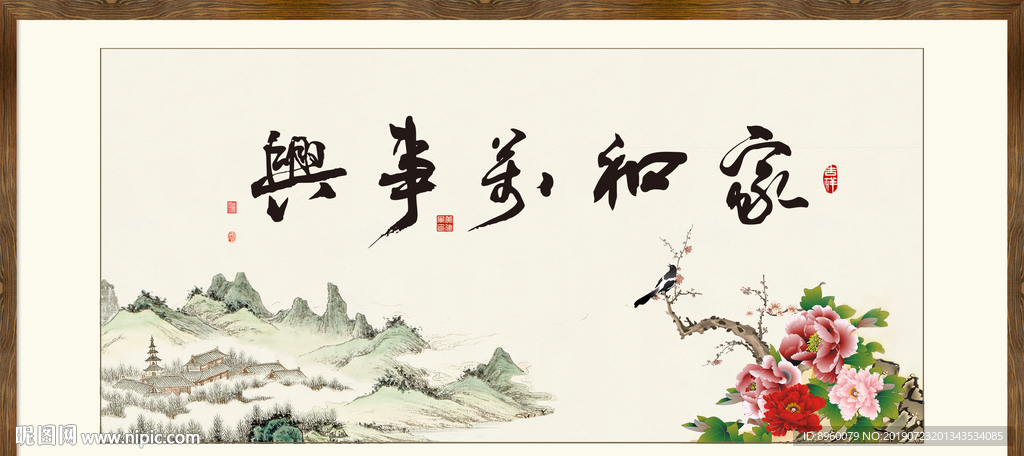 家和萬事興
吉祥
昵图网 www.nipic.com
ID:8960079 NO:20190723201343534085